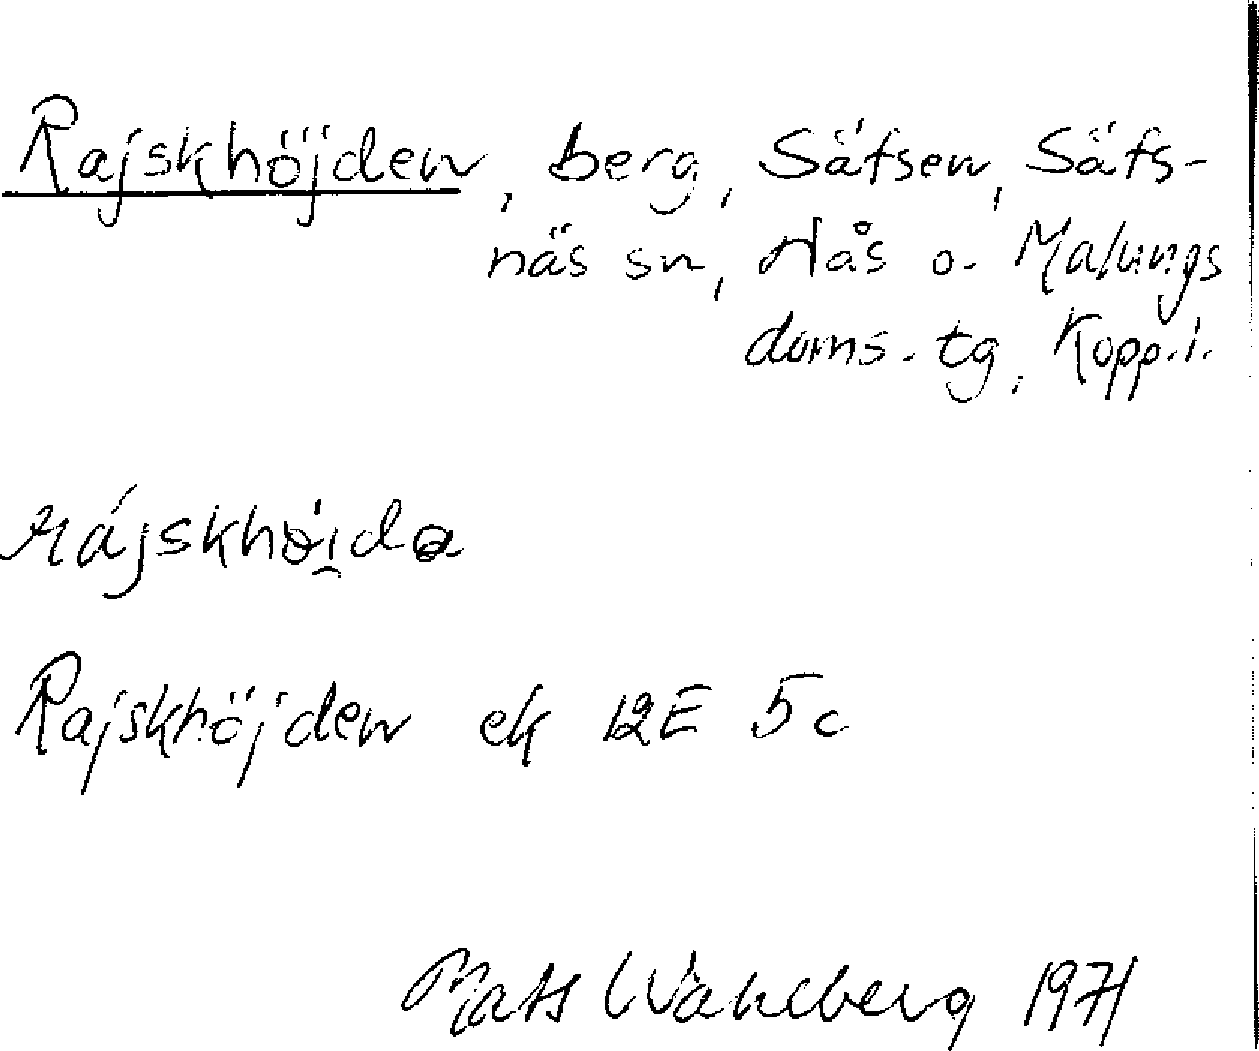 Rajskhöjden, berg, Säfsen, Säfs-
näs sn, Nås o. Malungs
doms. tg, Kopp. l.
rájskhøi̯da
Rajskhöjden ek 12E 5c
Mats Wahlberg 1971